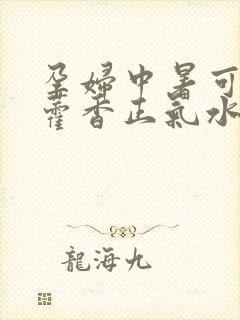 孕婦中暑可
藿香正氣水
龍海九